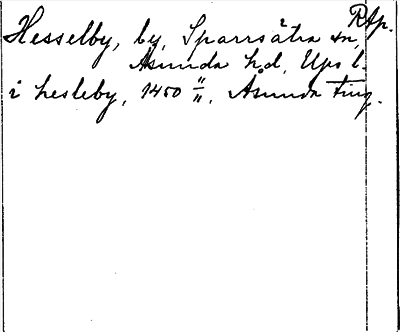 RAp.
Hesselby, by, Sparrsätra sn,
Åsunda hd, Ups l.
i hesleby, 1450 11/11, Åsunda ting.